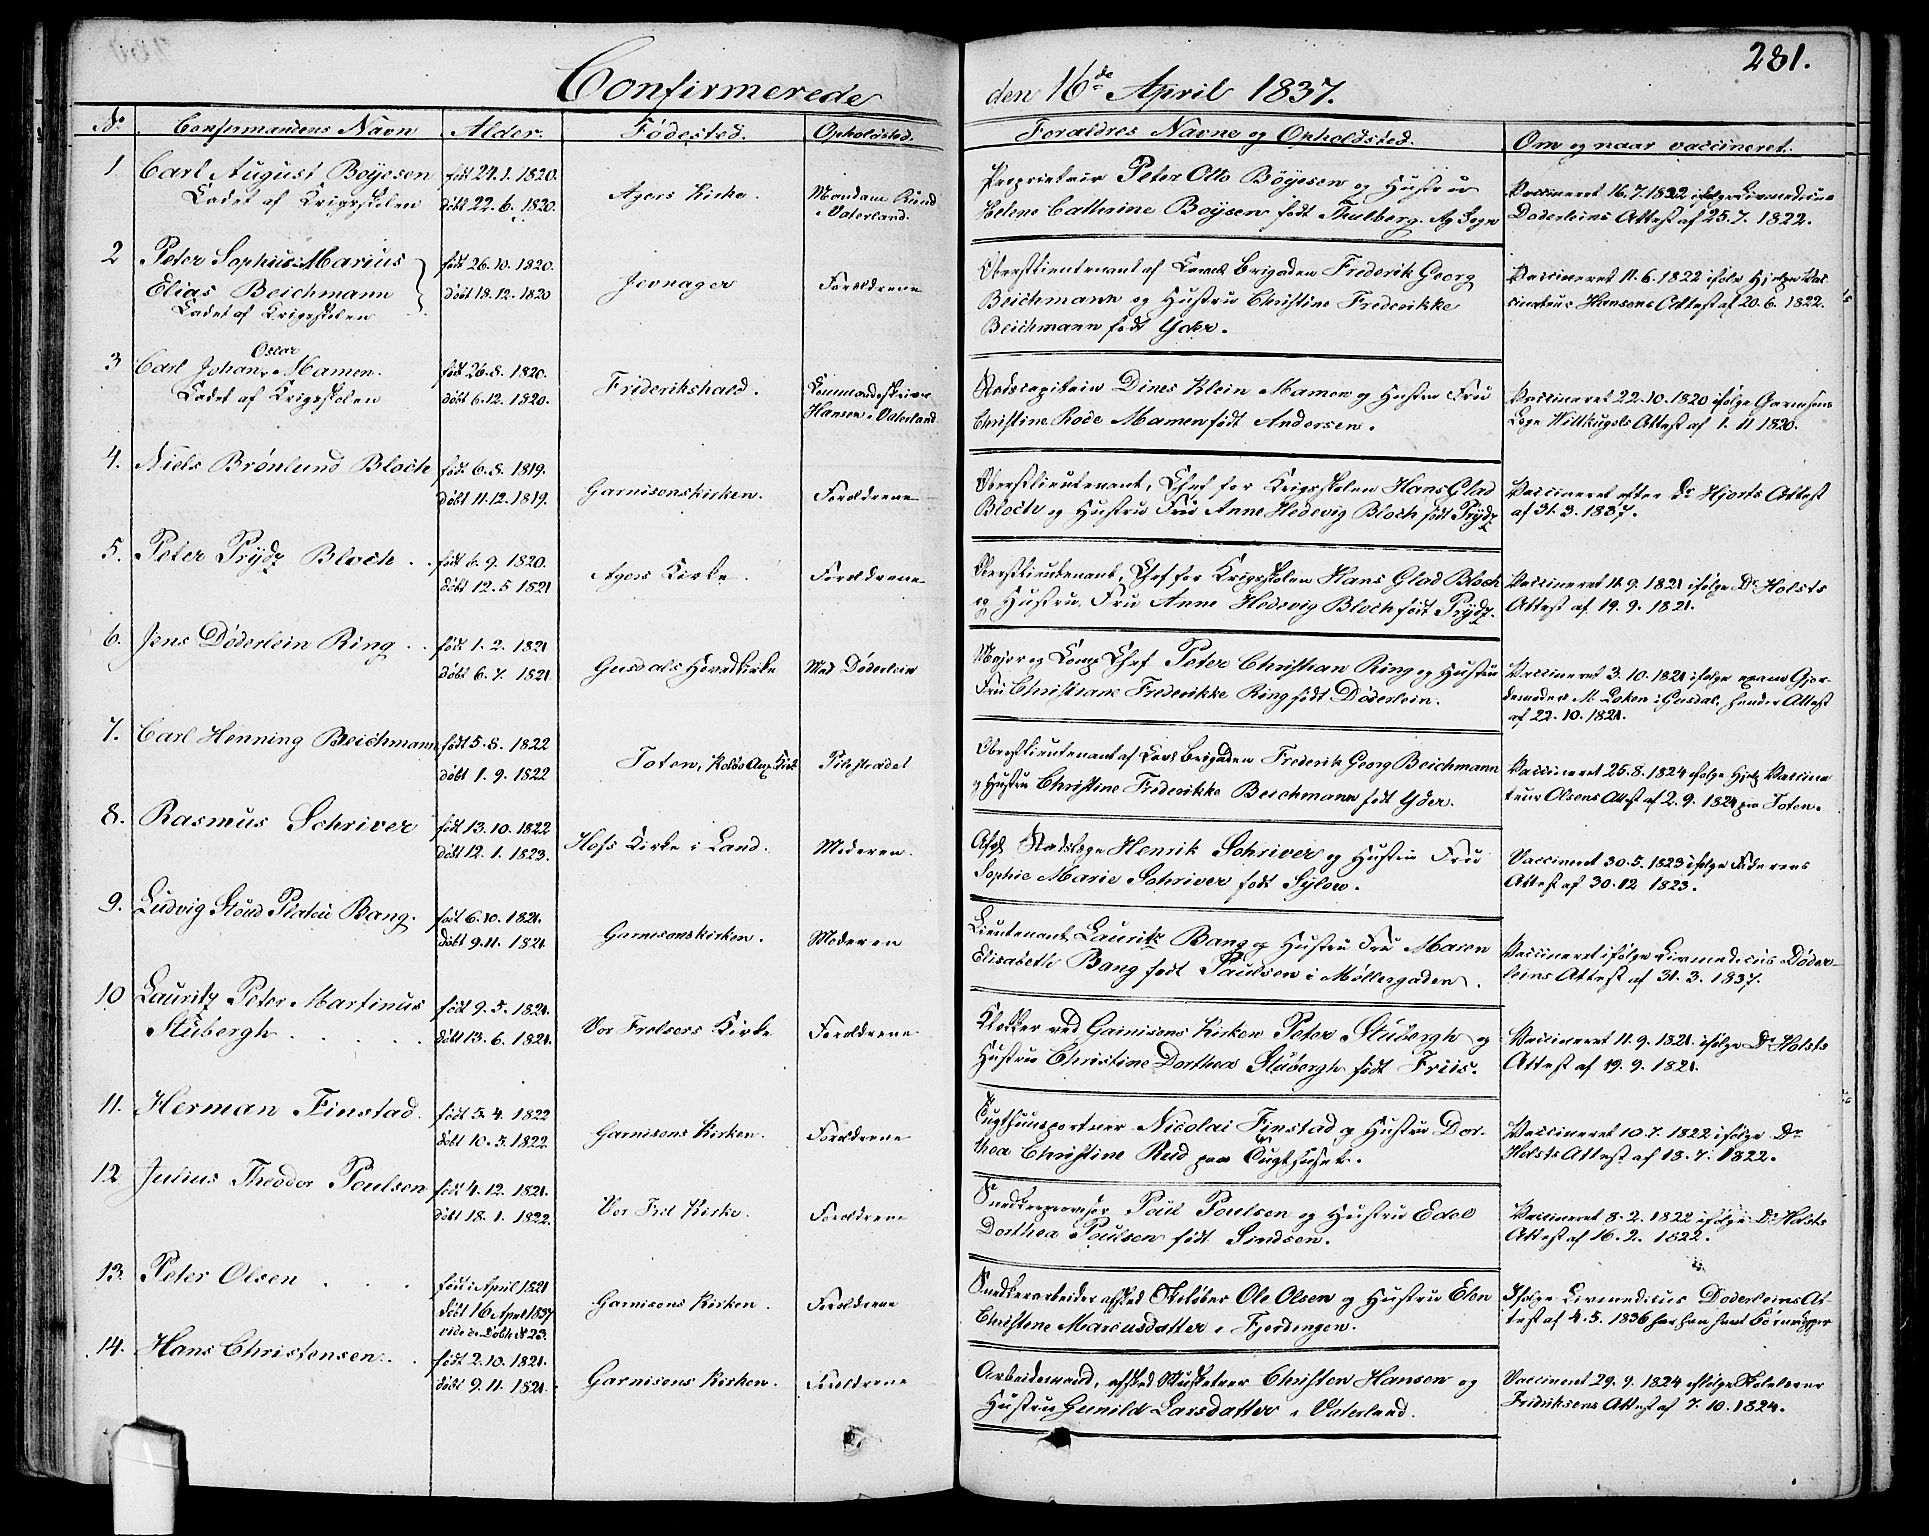 281.
Confirmerede den 16de April 1837.
No. Confirmandens Navn Alder. Fødested. Opholdsted. Forældres Navne og Opholdsted. Om og naar vaccineret.
1 Carl August Boyesen født 24.1.1820.
Cadet af Krigsskolen døbt 22.6.1820. Agers Kirke. Madame Rund
i Vaterland.
Proprietair Peter Otto Böyesen og Hustrue
Helene Cathrine Boysen født Thulberg. Ag. Sogn
Vaccineret 16.7.1822 ifølge Livmedicus
Døderleins Attest af 25.7.1822.
2 Peter Sophus Marius født 26.10.1820.
Elias Beichmann døbt 18.12.1820 Jevnager Forældrene
Cadet af Krigsskolen
Oberstlieutenant af Brigaden Frederik Georg
Beichmann og Hustru Christine Frederikke
Beichmann født Yder.
Vaccineret 11.6.1822 ifølge Hjelpe Vac-
cinateur Hansens Attest af 20.6.1822.
3 Carl Johan Oscar Mamen. født 26.8.1820.
Cadet af Krigsskolen døbt 6.12.1820. Friderikshald. Commandeskriver
Hansen i Vaterland
Dines Klein Mamen og Hustru Fru
Christine Mamen født Andersen.
Vaccineret 22.10.1820 ifølge Garnisons
Læge Wittkugels Attest af 1.11.1820.
4. Niels Brønlund Bloch født 6.8.1819.
døbt 11.12.1819. Garnisonskirken. Forældrene
Oberstlieutenant, Chef for Krigsskolen Hans Glad
Bloch og Hustru Fru Anne Hedevig Bloch født Prydz
Vaccineret efter Dr Hjorts Attest
af 31.3.1837.
5. Peter Prydz Bloch født 6.9.1820.
døbt 12.5.1821 Agers Kirke. Forældrene
Oberstlieutenant, Chef for Krigsskolen Hans Glad Bloch
og Hustru Fru Anne Hedevig Bloch født Prydz.
Vaccineret 11.9.1821 ifølge Dr Holsts
Attest af 19.9.1821.
6. Jens Døderlein Ring født 1.2.1821
døbt 6.7.1821 Gusdals Hovedkirke Med Døderlein
Major og Comp Chef Peter Christian Ring og Hustru
Fru Christiane Frederikke Ring født Døderlein.
Vaccineret 3.10.1821 ifølge exam Gjor-
demoder M. Loken i Gusdal, hendes Attest
af 22.10.1821.
7. Carl Henning Beichmann født 5.8.1822
døbt 1.9.1822 Toten, Kolbo Anx. Kirke Pilestrædet
Oberstlieutenant af Brigaden Frederik Georg Beichmann
og Hustru Christine Frederikke Beichmann født Yder.
Vaccineret 25.8.1824 ifølge Hjelp Vaccina-
teur Olsens Attest af 2.9.1824 paa Toten.
8. Rasmus Schriver født 13.10.1822
døbt 12.1.1823. Hofs Kirke i Land. Moderen.
Henrik Schriver og Hustru Fru
Sophie Marie Schriver født Sylow.
Vaccineret 30.5.1823 ifølge Faderens
Attest af 30.12.1823.
9. Ludvig Stoud Platou Bang. født 6.10.1821.
døbt 9.11.1821. Garnisonskirken. Moderen
Lieutenant Lauritz Bang og Hustru Fru Maren
Elisabeth Bang født Paulsen i Møllergaden.
Vaccineret ifølge Livmedicus Døder-
leins Attest af 31.3.1837.
10 Lauritz Peter Martinus født 9.5.1821.
Stübergh døbt 13.6.1821. Vor Frelsers Kirke Forældrene
Klokker ved Garnisons Kirken Peter Stübergh og
Hustru Christine Dorthea Stübergh født Friis.
Vaccineret 11.9.1821 ifølge Dr Holsts
Attest af 19.9.1821.
11. Herman Finstad. født 5.4.1822
døbt 10.5.1822. Garnisons Kirken. Forældrene
Tugthuusportner Nicolai Finstad og Hustru Dor-
thea Christine Rud paa Tugthuset.
Vaccineret 10.7.1822 ifølge Dr
Holsts Attest af 18.7.1822.
12 Julius Theodor Poulsen født 4.12.1821.
døbt 18.1.1822. Vor Frel Kirke. Forældrene
Poül Poulsen og Hustru Edel
Dorthea Poulsen født Sindsen.
Vaccineret 8.2.1822 ifølge Dr Holsts
Attest af 16.2.1822.
13. Peter Olsen født i April 1821
døbt 16 April 1837
vide Døbte N 23. Garnisons Kirken. Forældrene
Snedkerarbeider afsked Ole Olsen og Hustru Elen
Christine Marcusdatter i Fjerdingen.
Ifølge Livmedicus Døderleins At-
test af 4.5.1836 har han havt Børnekopper
14. Hans Christensen født 2.10.1821.
døbt 9.11.1821. Garnisons Kirken. Forældrene
Arbeidsmand, afsked Musketeer Christen Hansen og
Hustru Gunild Larsdatter i Vaterland.
Vaccineret 29.9.1824 ifølge Skolelærer
Fridriksens Attest af 7.10.1824.